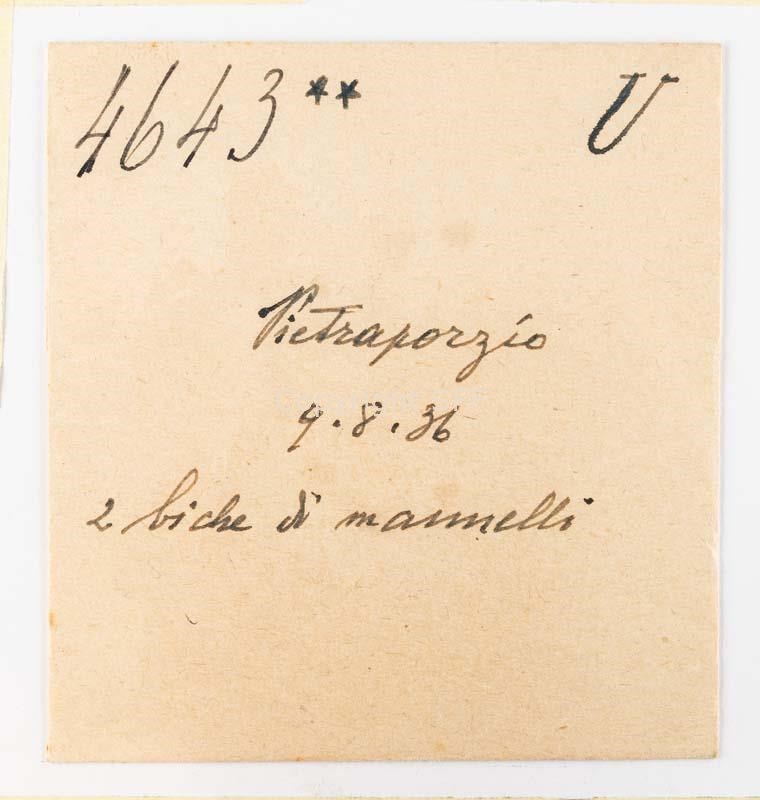 4643** U
Pietraporzio
9.8.36
2 biche di mannelli